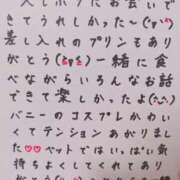 きてうれしかった〜(
差し入れのプリンもあり
がとう
一緒に食
べながらいろんなお話
できて楽しかったよ
バニーのコスプレかわい
くてテンションあがりまし
た♥♥ベットではいっぱい気
持ちよくしてくれてあり